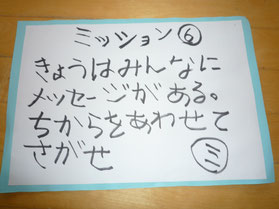 ミッション⑥
きょうはみんなに
メッセージがある。
ちからをあわせて
さがせ
ミ